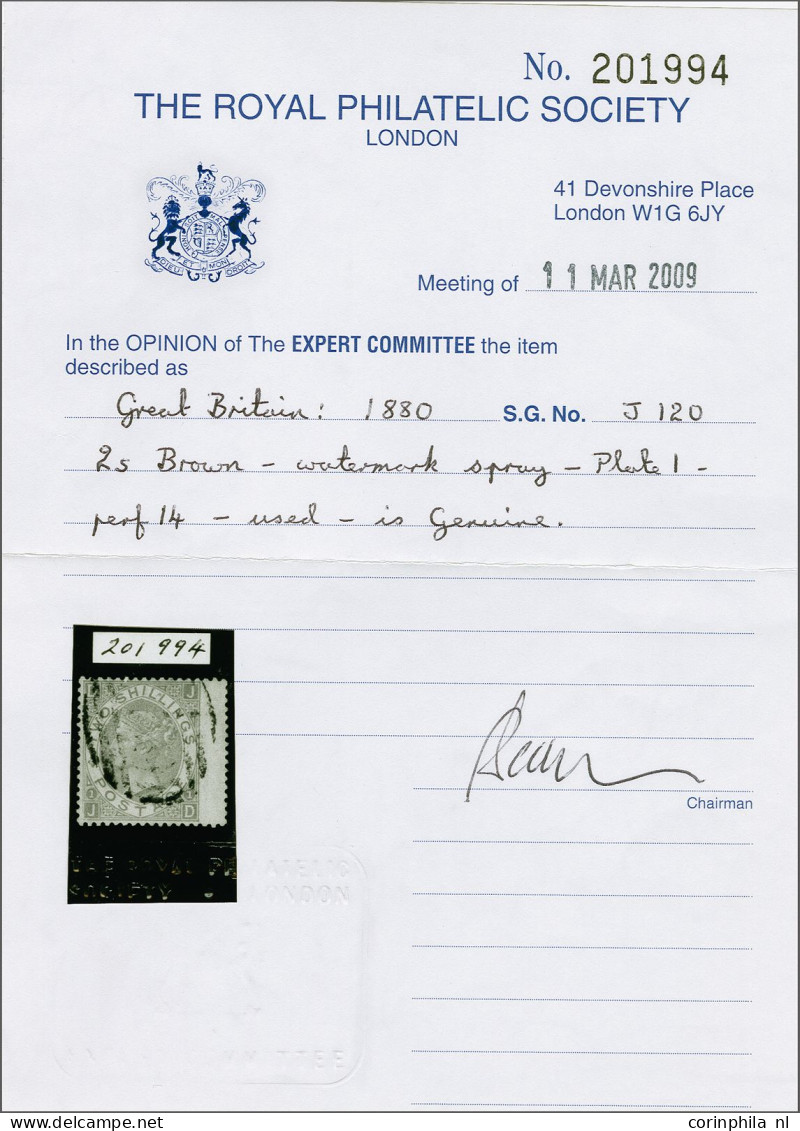 No. 201994
THE ROYAL PHILATELIC SOCIETY
LONDON
41 Devonshire Place
London W1G 6JY
DIEU ET MON DROIT
Meeting of 11 MAR 2009
In the OPINION of The EXPERT COMMITTEE the item
described as
Great Britain: 1880 S.G. No. J 120
2s Brown - watermark spray - Plate 1 -
perf 14 - used - is Genuine.
201 994
J
TWO SHILLINGS
1
POST
J D
THE ROYAL PHILATELIC
SOCIETY LONDON
Chairman
corinphila nl